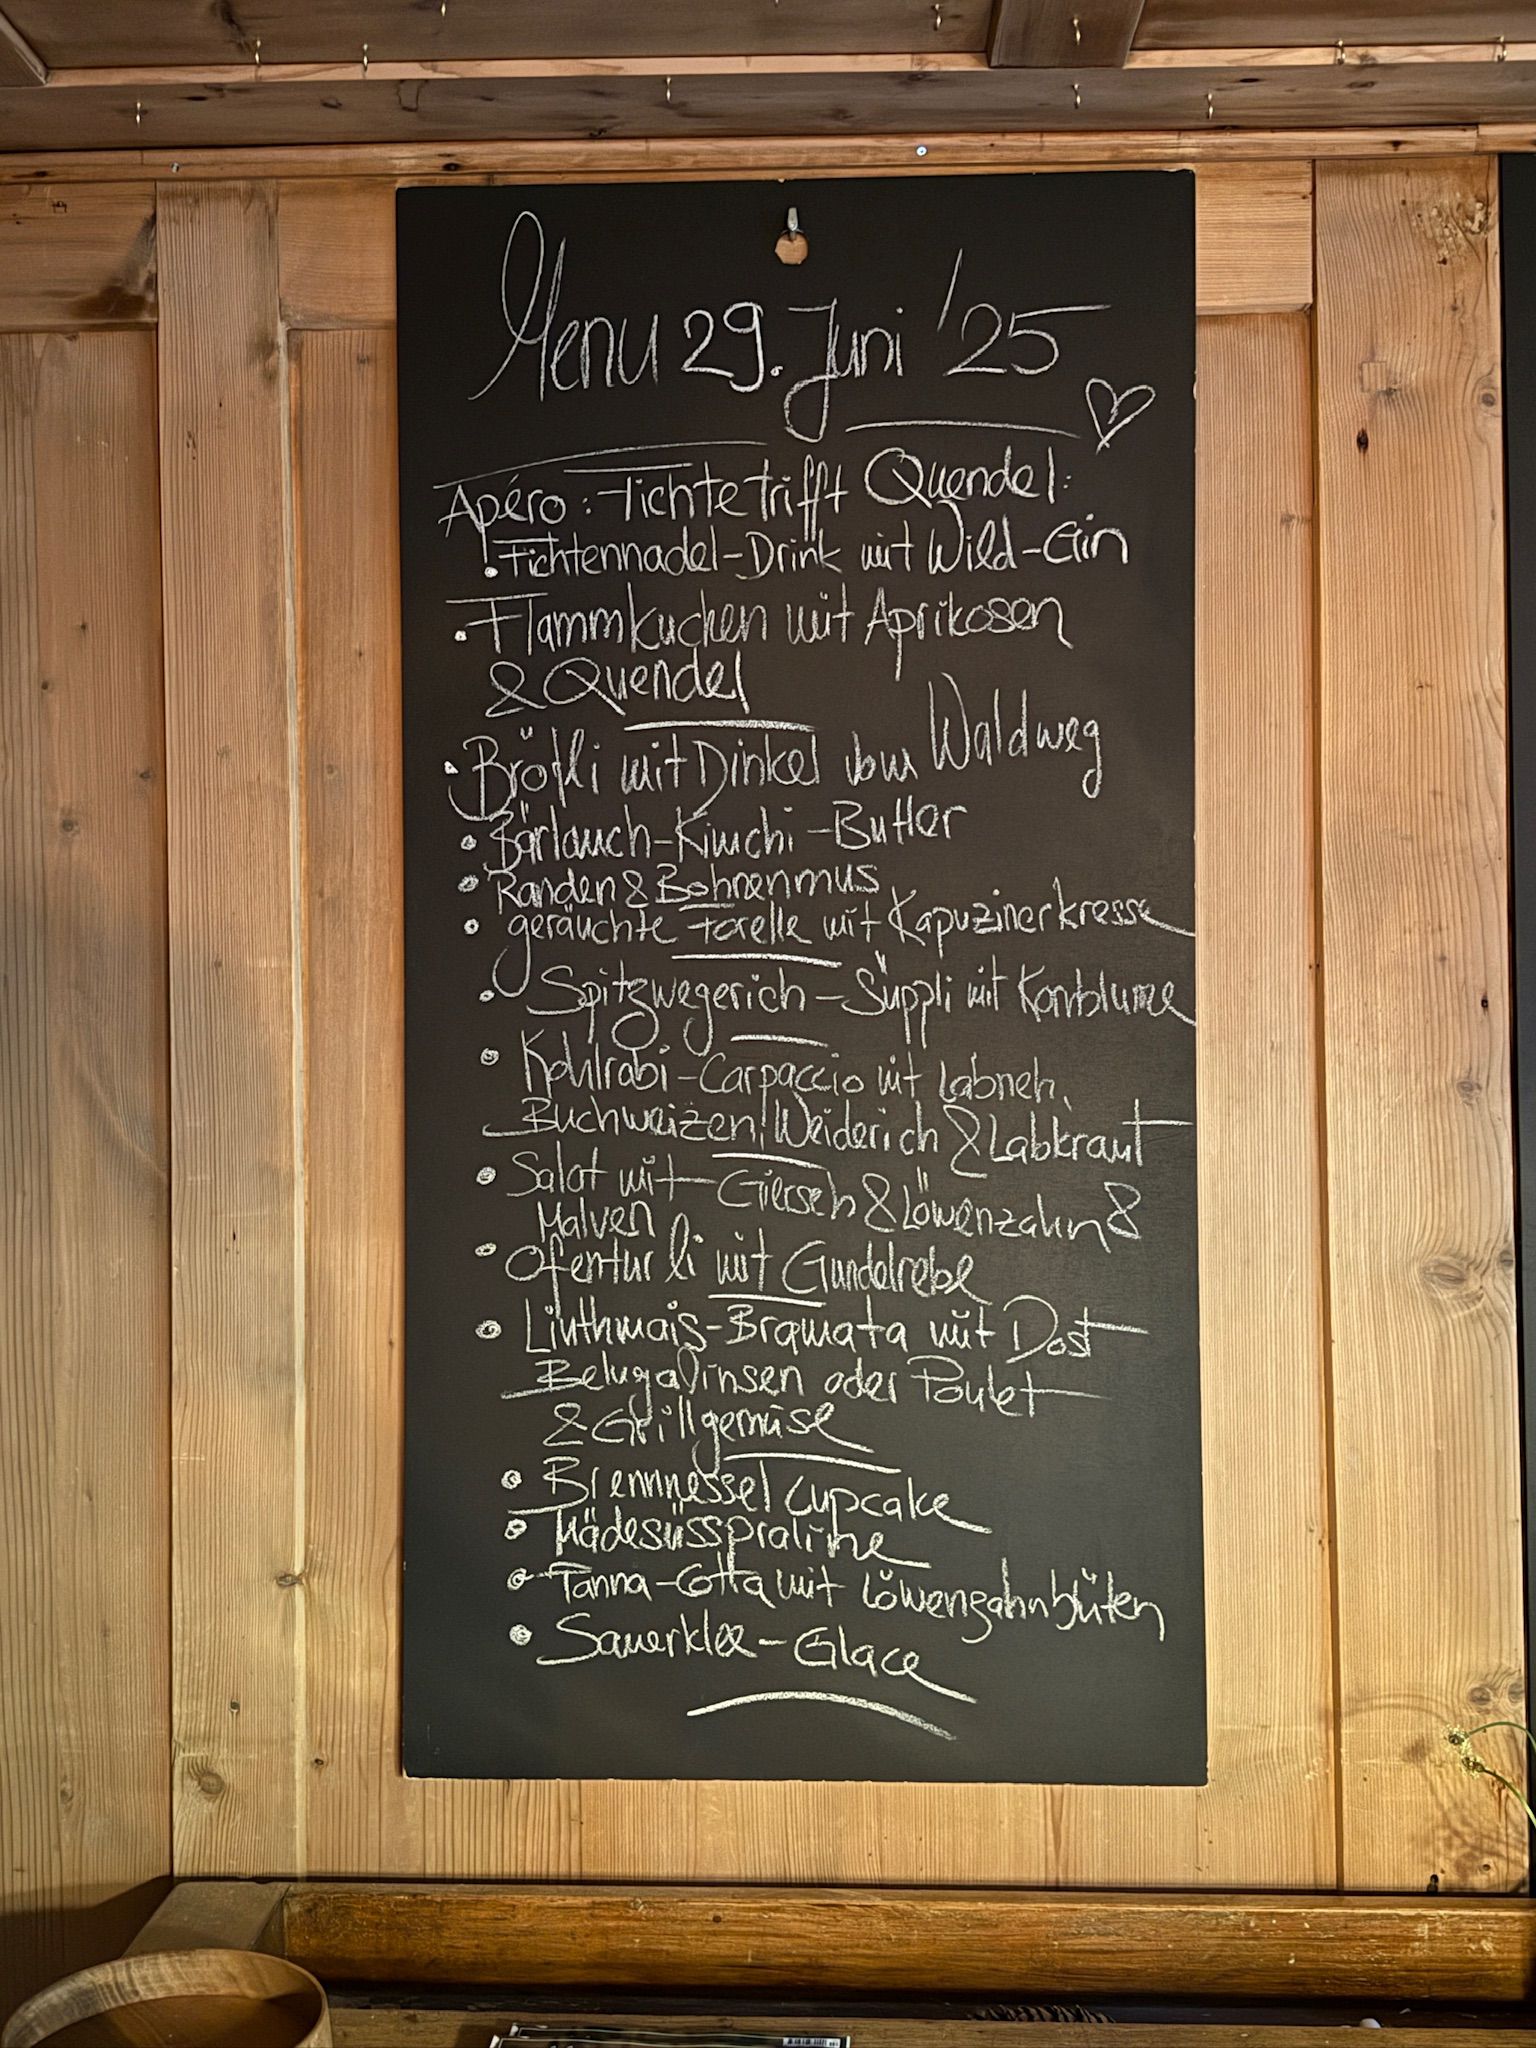 Menu 29. Juni '25
Apéro: Fichte trifft Quendel:
• Fichtennadel-Drink mit Wild-Gin
• Flammkuchen mit Aprikosen
& Quendel
• Brötli mit Dinkel vom Waldweg
• Bärlauch-Kimchi-Butter
• Randen & Bohnenmus
• geräuchte Forelle mit Kapuzinerkresse
• Spitzwegerich-Süppli mit Kornblume
• Kohlrabi-Carpaccio mit Labneh,
Buchweizen, Weiderich & Labkraut
• Salat mit Giersch & Löwenzahn &
Malven
• Ofenturli mit Gundelrebe
• Linthmais-Bramata mit Dost
Belugalinsen oder Poulet
& Grillgemüse
• Brennnessel Cupcake
• Mädesüsspraline
• Tanna-Cotta mit Löwenzahnblüten
• Sauerklee-Glace